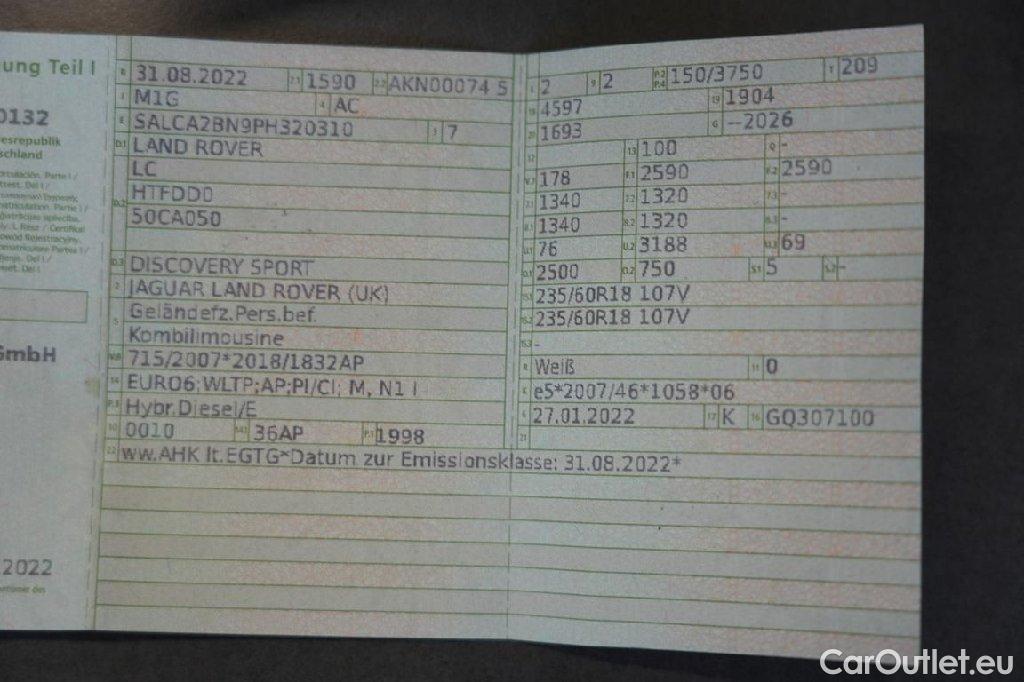 ung Teil I
0132
esrepublik
schland
GmbH
2022
B 31.08.2022 2.1 1590 2.2 AKN00074 5
J M1G 4 AC
E SALCA2BN9PH320310 3 7
D.1 LAND ROVER
LC
D.2 HTFDD0
50CA050
D.3 DISCOVERY SPORT
2 JAGUAR LAND ROVER (UK)
5 Geländefz.Pers.bef.
Kombilimousine
V.9 715/2007*2018/1832AP
14 EURO6;WLTP;AP;PI/CI; M, N1 I
P.3 Hybr.Diesel/E
10 0010 14.1 36AP P.1 1998
22 ww.AHK lt.EGTG*Datum zur Emissionsklasse: 31.08.2022*
L 2 9 2 P.2 P.4 150/3750 T 209
18 4597 19 1904
20 1693 G --2026
12 13 100 Q -
V.7 178 F.1 2590 F.2 2590
7.1 1340 7.2 1320 7.3 -
8.1 1340 8.2 1320 8.3 -
U.1 76 U.2 3188 U.3 69
O.1 2500 O.2 750 S.1 5 S.2 -
15.1 235/60R18 107V
15.2 235/60R18 107V
15.3 -
R Weiß 11 0
K e5*2007/46*1058*06
6 27.01.2022 17 K 16 GQ307100
21
CarOutlet.eu